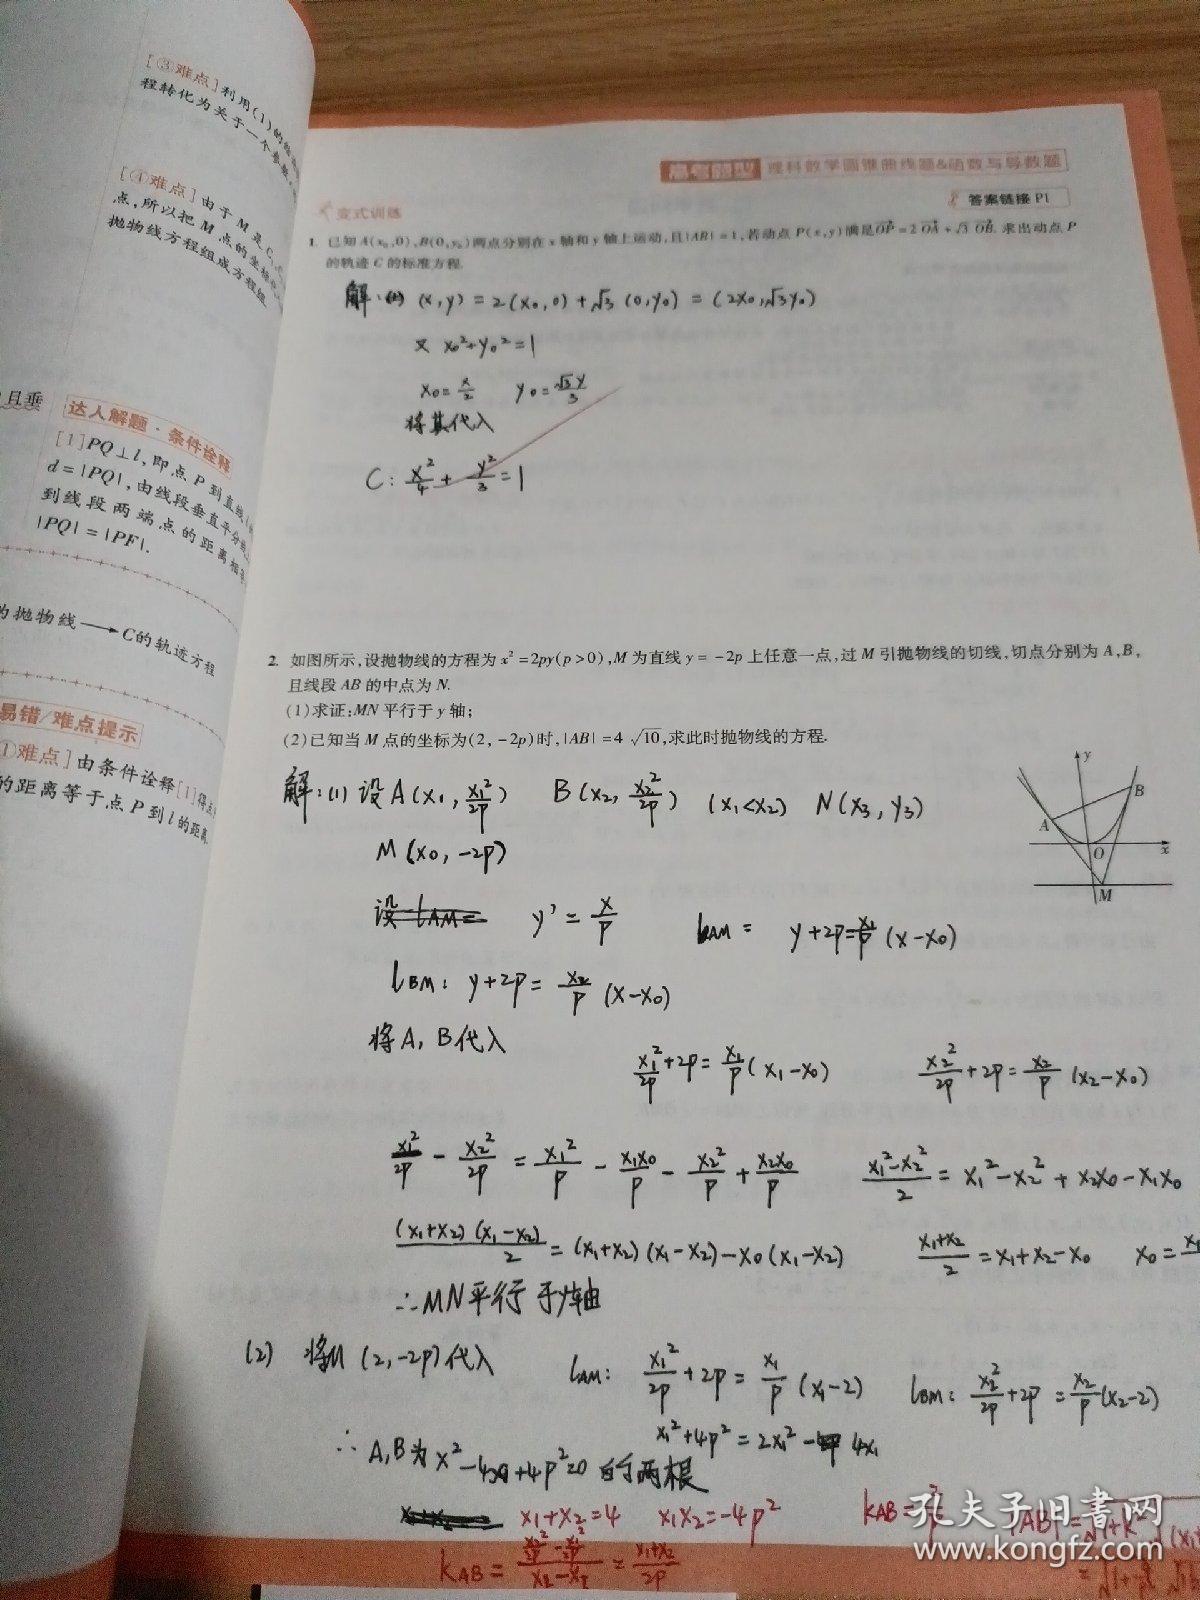 [③难点]利用(1)的
程转化为关于一个参数
[④难点]由于M是
点,所以把M点的坐标
抛物线方程组成方程组
且垂
达人解题·条件诠释
[1]PQ⊥l,即点P到直线
d=|PQ|,由线段垂直平分线
到线段两端点的距离相等
|PQ|=|PF|.
抛物线→C的轨迹方程
易错/难点提示
[①难点]由条件诠释[1]得点
的距离等于点P到l的距离
高考题型 理科数学圆锥曲线题&函数与导数题
答案链接P1
变式训练
1. 已知A(x₀,0),B(0,y₀)两点分别在x轴和y轴上运动,且|AB|=1,若动点P(x,y)满足OP=2OA+√3OB.求出动点P
的轨迹C的标准方程.
解: (x,y)=2(x₀,0)+√3(0,y₀)=(2x₀,√3y₀)
又 x₀²+y₀²=1
x₀=x/2 y₀=√3y/3
将其代入
C: x²/4+y²/3=1
2. 如图所示,设抛物线的方程为x²=2py(p>0),M为直线y=-2p上任意一点,过M引抛物线的切线,切点分别为A,B,
且线段AB的中点为N.
(1)求证:MN平行于y轴;
(2)已知当M点的坐标为(2,-2p)时,|AB|=4√10,求此时抛物线的方程.
y
B
A
O
x
M
解:(1)设A(x₁,x₁²/2p) B(x₂,x₂²/2p) (x₁<x₂) N(x₃,y₃)
M(x₀,-2p)
设 lAM= y'=x/p lAM= y+2p=x₁/p(x-x₀)
lBM: y+2p=x₂/p(x-x₀)
将A,B代入
x₁²/2p+2p=x₁/p(x₁-x₀) x₂²/2p+2p=x₂/p(x₂-x₀)
x₁²/2p-x₂²/2p=x₁²/p-x₁x₀/p-x₂²/p+x₂x₀/p (x₁²-x₂²)/2=x₁²-x₂²+x₂x₀-x₁x₀
(x₁+x₂)(x₁-x₂)/2=(x₁+x₂)(x₁-x₂)-x₀(x₁-x₂) (x₁+x₂)/2=x₁+x₂-x₀ x₀=
∴MN平行于y轴
(2) 将M(2,-2p)代入 lAM: x₁²/2p+2p=x₁/p(x₁-2) lBM: x₂²/2p+2p=x₂/p(x₂-2)
x₁²+4p²=2x₁²-4x₁
∴A,B为x²-4x+4p²=0的两根
x₁+x₂=4 x₁x₂=-4p² kAB=2/p |AB|=
kAB=(x₂²/2p-x₁²/2p)/(x₂-x₁)=(x₁+x₂)/2p
孔夫子旧書网
www.kongfz.com